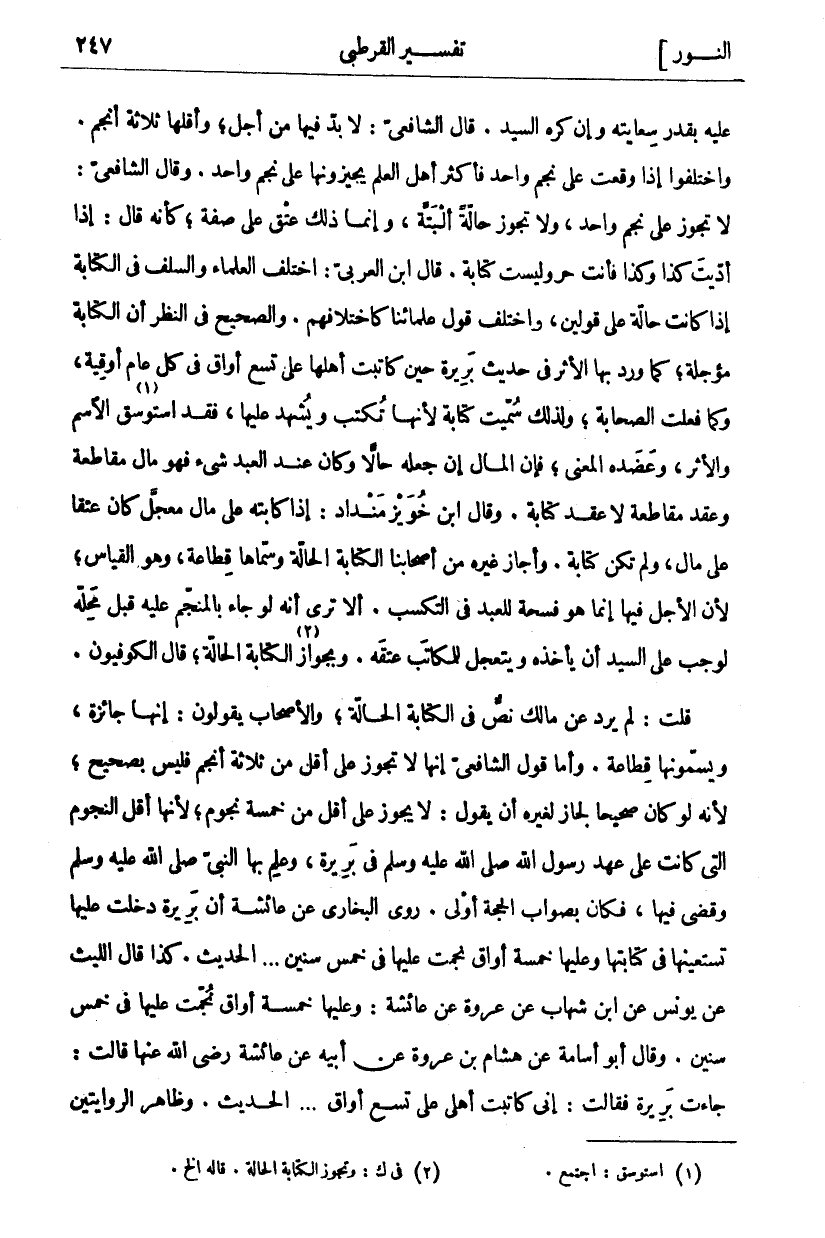 النــور ] تفســير القرطبى ٢٤٧
عليه بقدر سِعايته وإن كره السيد . قال الشافعىّ : لا بدّ فيها من أجل؛ وأقلها ثلاثة أنجم .
واختلفوا إذا وقعت على نجم واحد فأكثر أهل العلم يجيزونها على نجم واحد . وقال الشافعىّ :
لا تجوز على نجم واحد ، ولا تجوز حالّةً ألْبَتَّة ، وإنما ذلك عتْق على صفة ؛ كأنه قال : إذا
أدّيتَ كذا وكذا فأنت حر وليست كتابة . قال ابن العربىّ : اختلف العلماء والسلف فى الكتابة
إذا كانت حالّة على قولين، واختلف قول علمائنا كاختلافهم . والصحيح فى النظر أن الكتابة
مؤجلة؛ كما ورد بها الأثر فى حديث بَرِيرة حين كاتبت أهلها على تسع أواق فى كل عام أوقِية،
وكما فعلت الصحابة ؛ ولذلك سُمّيت كتابة لأنهــا تُكتب ويُشهد عليها ، فقــد استوسق(١) الاسم
والأثر ، وعَضَده المعنى ؛ فإن المــال إن جعله حالًّا وكان عنــد العبد شىء فهو مال مقاطعة
وعقد مقاطعة لا عقــد كتابة . وقال ابن خُوَيْزِ مَنْــداد : إذا كاتبه على مال معجلَّ كان عتقا
على مال، ولم تكن كتابة . وأجاز غيره من أصحابنا الكتابة الحالّة وسمّاها قِطاعة، وهو القياس؛
لأن الأجل فيها إنما هو فسحة للعبد فى التكسب . ألا ترى أنه لو جاء بالمنجّم عليه قبل مَحِلّه
لوجب على السيد أن يأخذه ويتعجل للمكاتَب عتقَه . وبجواز(٢) الكتابة الحالّة؛ قال الكوفيون .
قلت : لم يرد عن مالك نصٌّ فى الكتابة الحــالّة ؛ والأصحاب يقولون : إنهــا جائزة ،
ويسمّونها قِطاعة . وأما قول الشافعىّ إنها لا تجوز على أقل من ثلاثة أنجم فليس بصحيح ؛
لأنه لو كان صحيحا لجاز لغيره أن يقول : لا يجوز على أقل من خمسة نجوم؛ لأنها أقل النجوم
التى كانت على عهد رسول الله صلى الله عليه وسلم فى بَرِيرة ، وعلِم بها النبىّ صلى الله عليه وسلم
وقضى فيها ، فكان بصواب الحجة أوْلى . روى البخارى عن عائشــة أن بَرِيرة دخلت عليها
تستعينها فى كتابتها وعليها خمسة أواق نجمت عليها فى خمس سنين ... الحديث . كذا قال الليث
عن يونس عن ابن شهاب عن عروة عن عائشة : وعليها خمســة أواق نُجّمت عليها فى خمس
سنين . وقال أبو أسامة عن هشام بن عروة عن أبيه عن عائشة رضى الله عنها قالت :
جاءت بَرِيرة فقالت : إنى كاتبت أهلى على تســع أواق ... الحــديث . وظاهر الروايتين
(١) استوسق : اجتمع . (٢) فى ك : وتجوز الكتابة الحالة . قاله الخ .